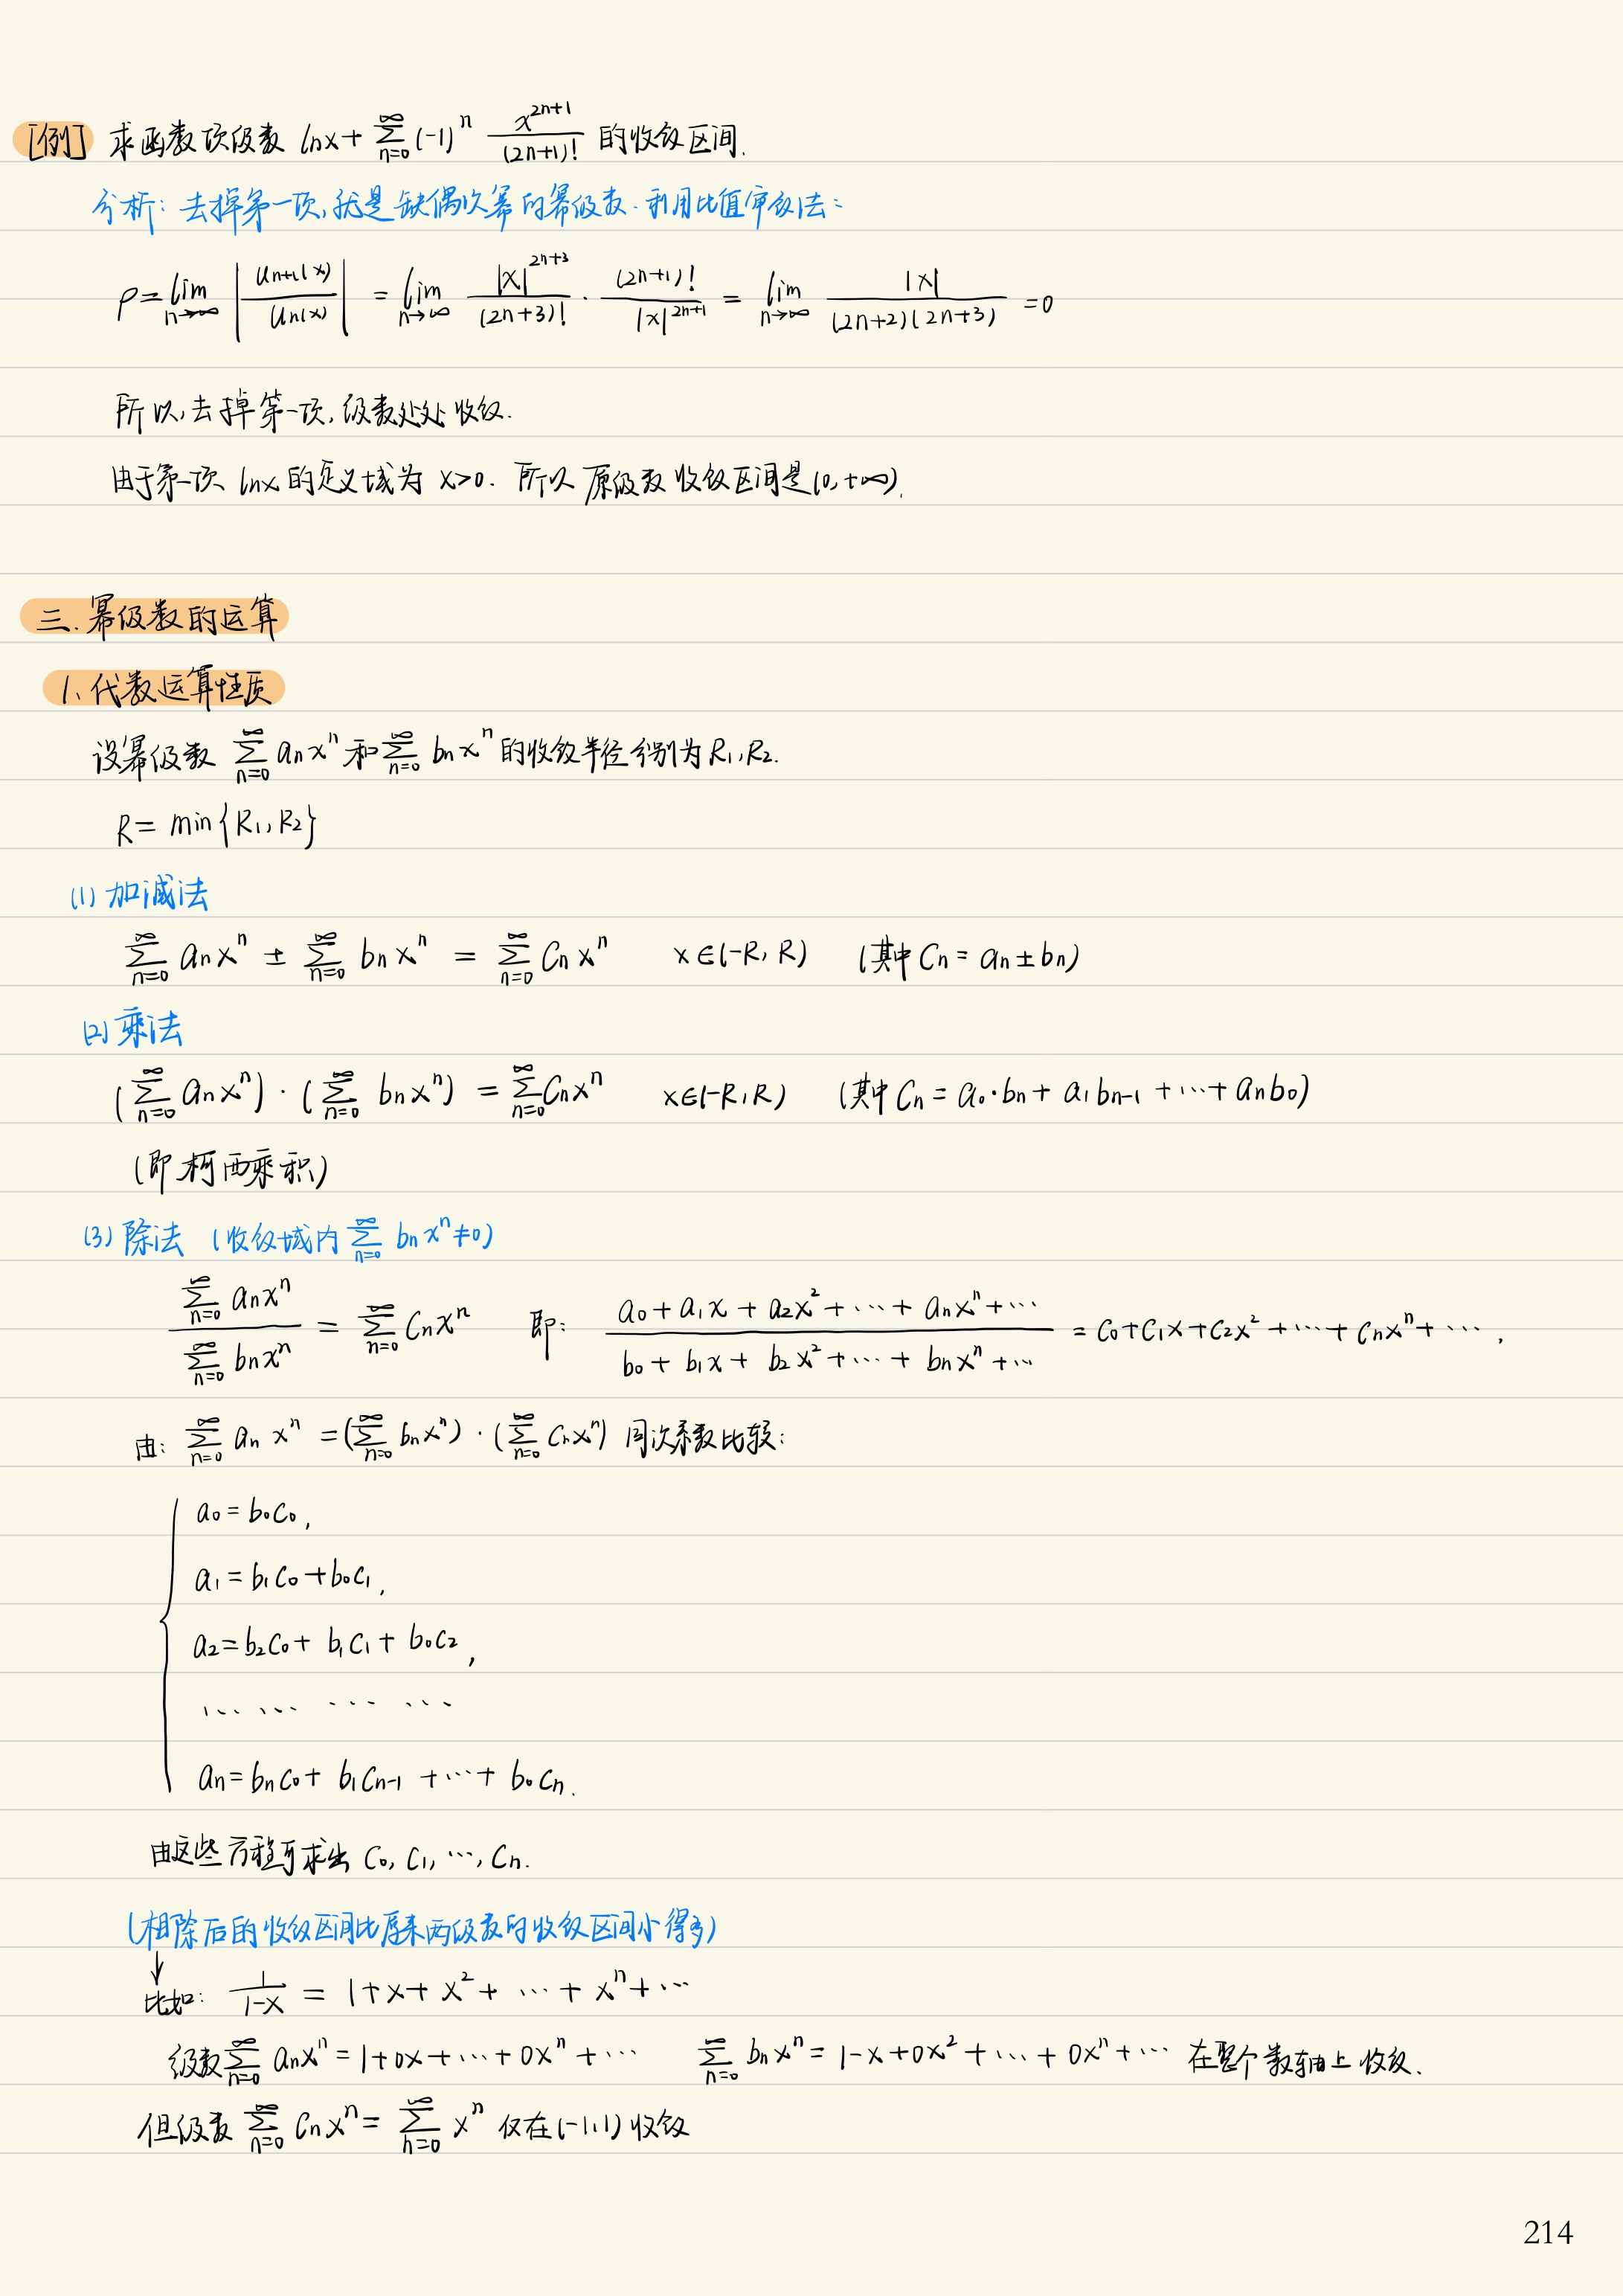 [例] 求函数项级数 lnx + ∑_{n=0}^{∞} (-1)^n \frac{x^{2n+1}}{(2n+1)!} 的收敛区间.
分析: 去掉第一项, 就是缺偶次幂的幂级数. 利用比值审敛法:
ρ = lim_{n→∞} |\frac{u_{n+1}(x)}{u_n(x)}| = lim_{n→∞} \frac{|x|^{2n+3}}{(2n+3)!} · \frac{(2n+1)!}{|x|^{2n+1}} = lim_{n→∞} \frac{|x|}{(2n+2)(2n+3)} = 0
所以, 去掉第一项, 级数处处收敛.
由于第一项 lnx 的定义域为 x>0. 所以 原级数收敛区间是(0,+∞).
三. 幂级数的运算
1、代数运算性质
设幂级数 ∑_{n=0}^{∞} a_n x^n 和 ∑_{n=0}^{∞} b_n x^n 的收敛半径分别为 R_1, R_2.
R = min{R_1, R_2}
(1) 加减法
∑_{n=0}^{∞} a_n x^n ± ∑_{n=0}^{∞} b_n x^n = ∑_{n=0}^{∞} C_n x^n x∈(-R, R) (其中 C_n = a_n ± b_n)
(2) 乘法
(∑_{n=0}^{∞} a_n x^n) · (∑_{n=0}^{∞} b_n x^n) = ∑_{n=0}^{∞} C_n x^n x∈(-R, R) (其中 C_n = a_0·b_n + a_1 b_{n-1} + ⋯ + a_n b_0)
(即柯西乘积)
(3) 除法 (收敛域内 ∑_{n=0}^{∞} b_n x^n ≠ 0)
\frac{∑_{n=0}^{∞} a_n x^n}{∑_{n=0}^{∞} b_n x^n} = ∑_{n=0}^{∞} C_n x^n 即: \frac{a_0 + a_1 x + a_2 x^2 + ⋯ + a_n x^n + ⋯}{b_0 + b_1 x + b_2 x^2 + ⋯ + b_n x^n + ⋯} = C_0 + C_1 x + C_2 x^2 + ⋯ + C_n x^n + ⋯ ,
由: ∑_{n=0}^{∞} a_n x^n = (∑_{n=0}^{∞} b_n x^n) · (∑_{n=0}^{∞} C_n x^n) 同次系数比较:
a_0 = b_0 c_0 ,
a_1 = b_1 c_0 + b_0 c_1 ,
a_2 = b_2 c_0 + b_1 c_1 + b_0 c_2 ,
⋯ ⋯ ⋯ ⋯
a_n = b_n c_0 + b_1 c_{n-1} + ⋯ + b_0 c_n .
由这些方程可求出 C_0, C_1, ⋯, C_n.
(相除后的收敛区间比原来两级数的收敛区间小得多)
↓
比如: \frac{1}{1-x} = 1 + x + x^2 + ⋯ + x^n + ⋯
级数 ∑_{n=0}^{∞} a_n x^n = 1 + 0x + ⋯ + 0x^n + ⋯ ∑_{n=0}^{∞} b_n x^n = 1 - x + 0x^2 + ⋯ + 0x^n + ⋯ 在整个数轴上收敛、
但级数 ∑_{n=0}^{∞} C_n x^n = ∑_{n=0}^{∞} x^n 仅在(-1,1)收敛
214